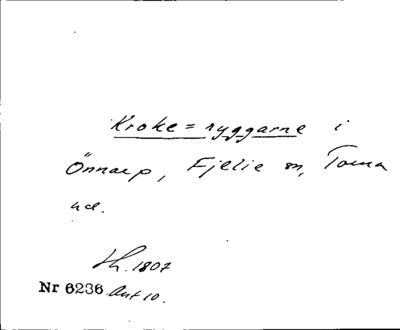 Kroke=ryggarne i
Önnarp, Fjelie sn, Torna
hd.
Sk. 1807
Nr 6236 Art 10.